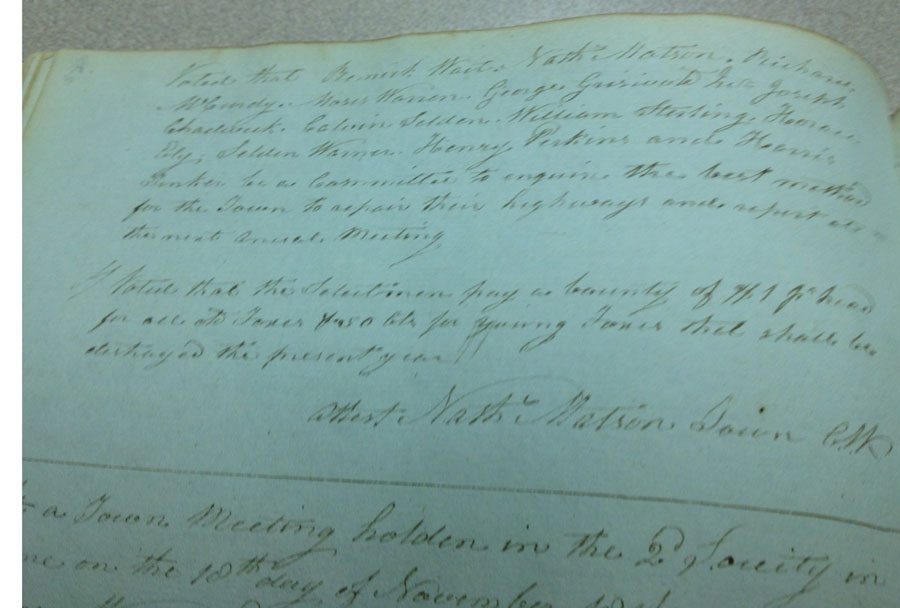 Voted that Remick Wait. Nathl Matson. Richard
McCurdy. Moses Warren. George Griswold Joseph
Chadwick. Calvin Selden. William Sterling, Horace
Ely, Selden Warner. Henry Perkins and Harris
Tinker be a Committee to enquire the best method
for the Town to repair their highways and report at a
the next annual Meeting
Voted that the Selectmen pay a bounty of $1 pr head
for all old Foxes & 50 Cts for young Foxes that shall be
destroyed the present year
Attest Nathl Matson Town Clk
a Town Meeting holden in the 2d Society in
on the 18th day of November